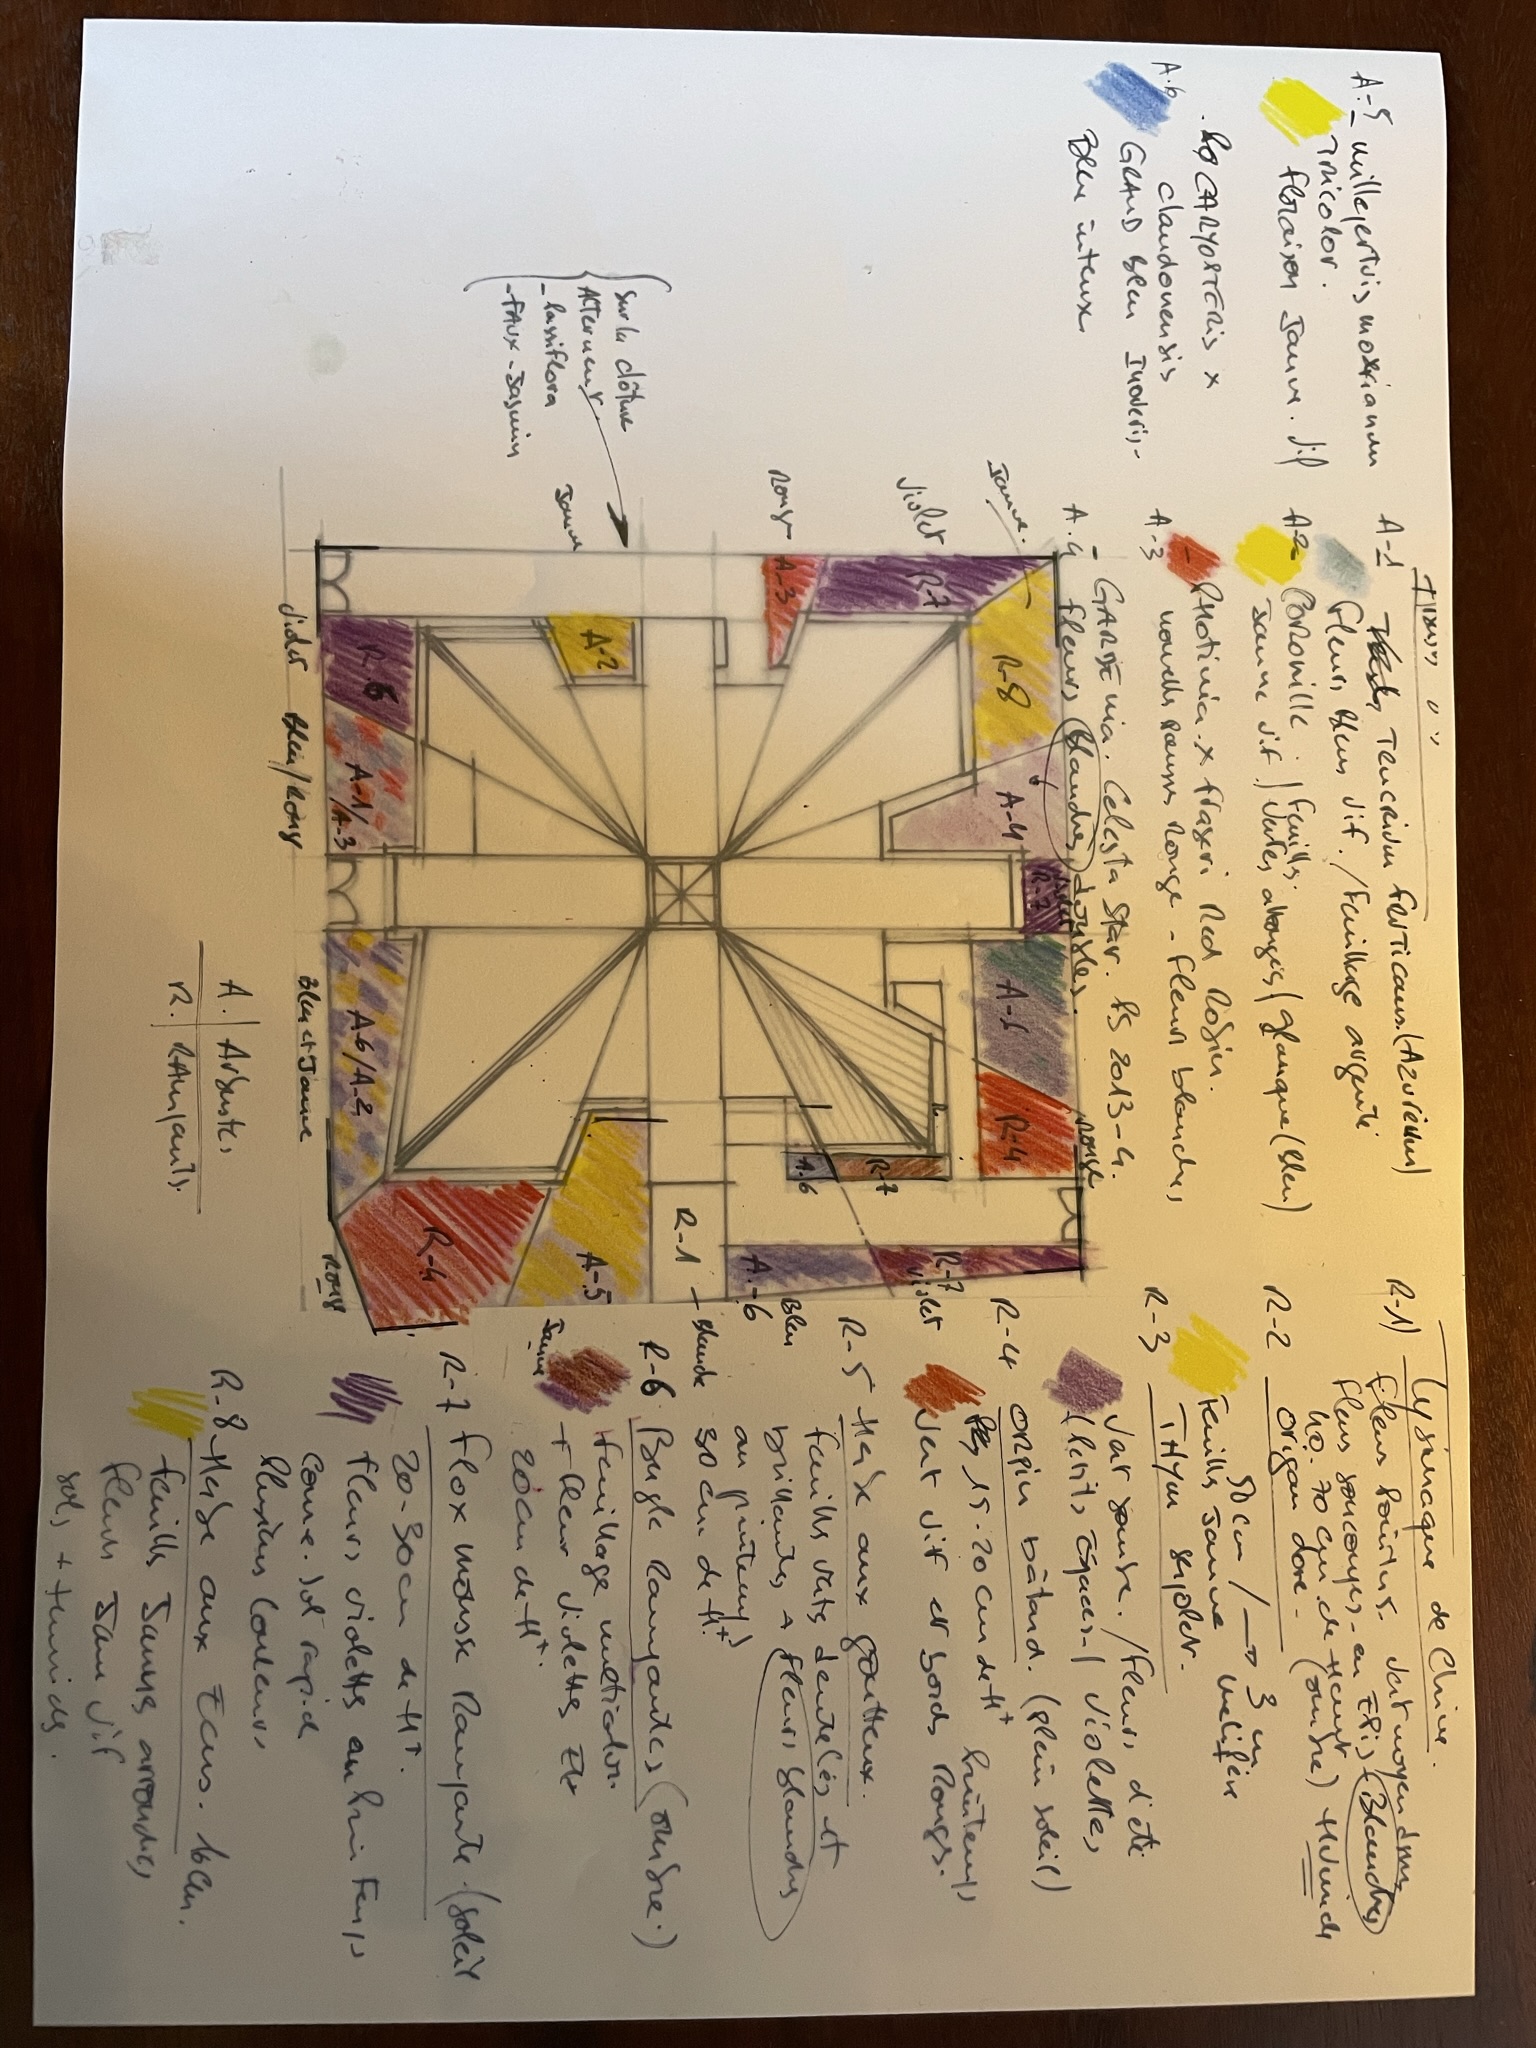 A-5 millepertuis moserianum
Tricolor.
floraison Jaune. vif
A.6
CARYOPTERIS x
clandonensis
GRAND Bleu Inoveris-
Bleu intense
A-1 Teucrium fruticans (Azureum)
fleurs bleus vif. / feuillage argenté
A-2 CORONILLE. / feuilles.
Jaune vif / vertes allongées / glauque (bleu)
A-3 - PHOTINIA x fraseri Red Robin.
nouvelles pousses Rouge - fleurs blanches
A.4 - GARDENIA. Celesta Star. RS 2013-4.
fleurs blanches doubles.
R-1) Lysimaque de Chine.
vert moyen
fleurs en EPIS (Blanches)
40. 70 cm de haut (ombre) Humide
R-2 origan doré-
50cm / → 3 m
Feuilles Jaune mellifère
R-3 THYM serpolet.
Vert sombre. / fleurs d'été
violettes
R-4 ORPIN bâtard. (plein soleil)
15-20 cm de Ht
vert vif et bords Rouges. Printemps
R-5 - Herbe aux goutteux.
feuilles verts dentelés et
brillantes + fleurs blanches
au printemps
30 cm de Ht
R-6. Bugle Rampantes (ombre.)
feuillage multicolor.
+ fleur violettes Eté
20cm de Ht.
R-7 flox mousse Rampante. (soleil
20-30 cm de Ht.
fleurs violettes au Printemps
Couvre. sol rapide
Plusieurs Couleurs
R-8 Herbe aux Ecus. 10cm.
feuilles Jaunes arrondies
fleurs Jaune vif
sols + humides.
Sur la clôture
Alterner
- Passiflora
- FAUX-Jasmin
Jaune
Rouge
Violet
Jaune.
A-3
R-7
A-2
R-8
R-6
A-1/
A-3
A-4
R-7
A-5
R-4
Rouge
A.6
R-7
A6/A-2
R-4
A-5
R-1
- Blanche
A.-6
Bleu
R-7
violet
Violet
Bleu/Rouge
Bleu et Jaune
Rouge
Jaune
A. | Arbustes
R. | RAMPANTS.